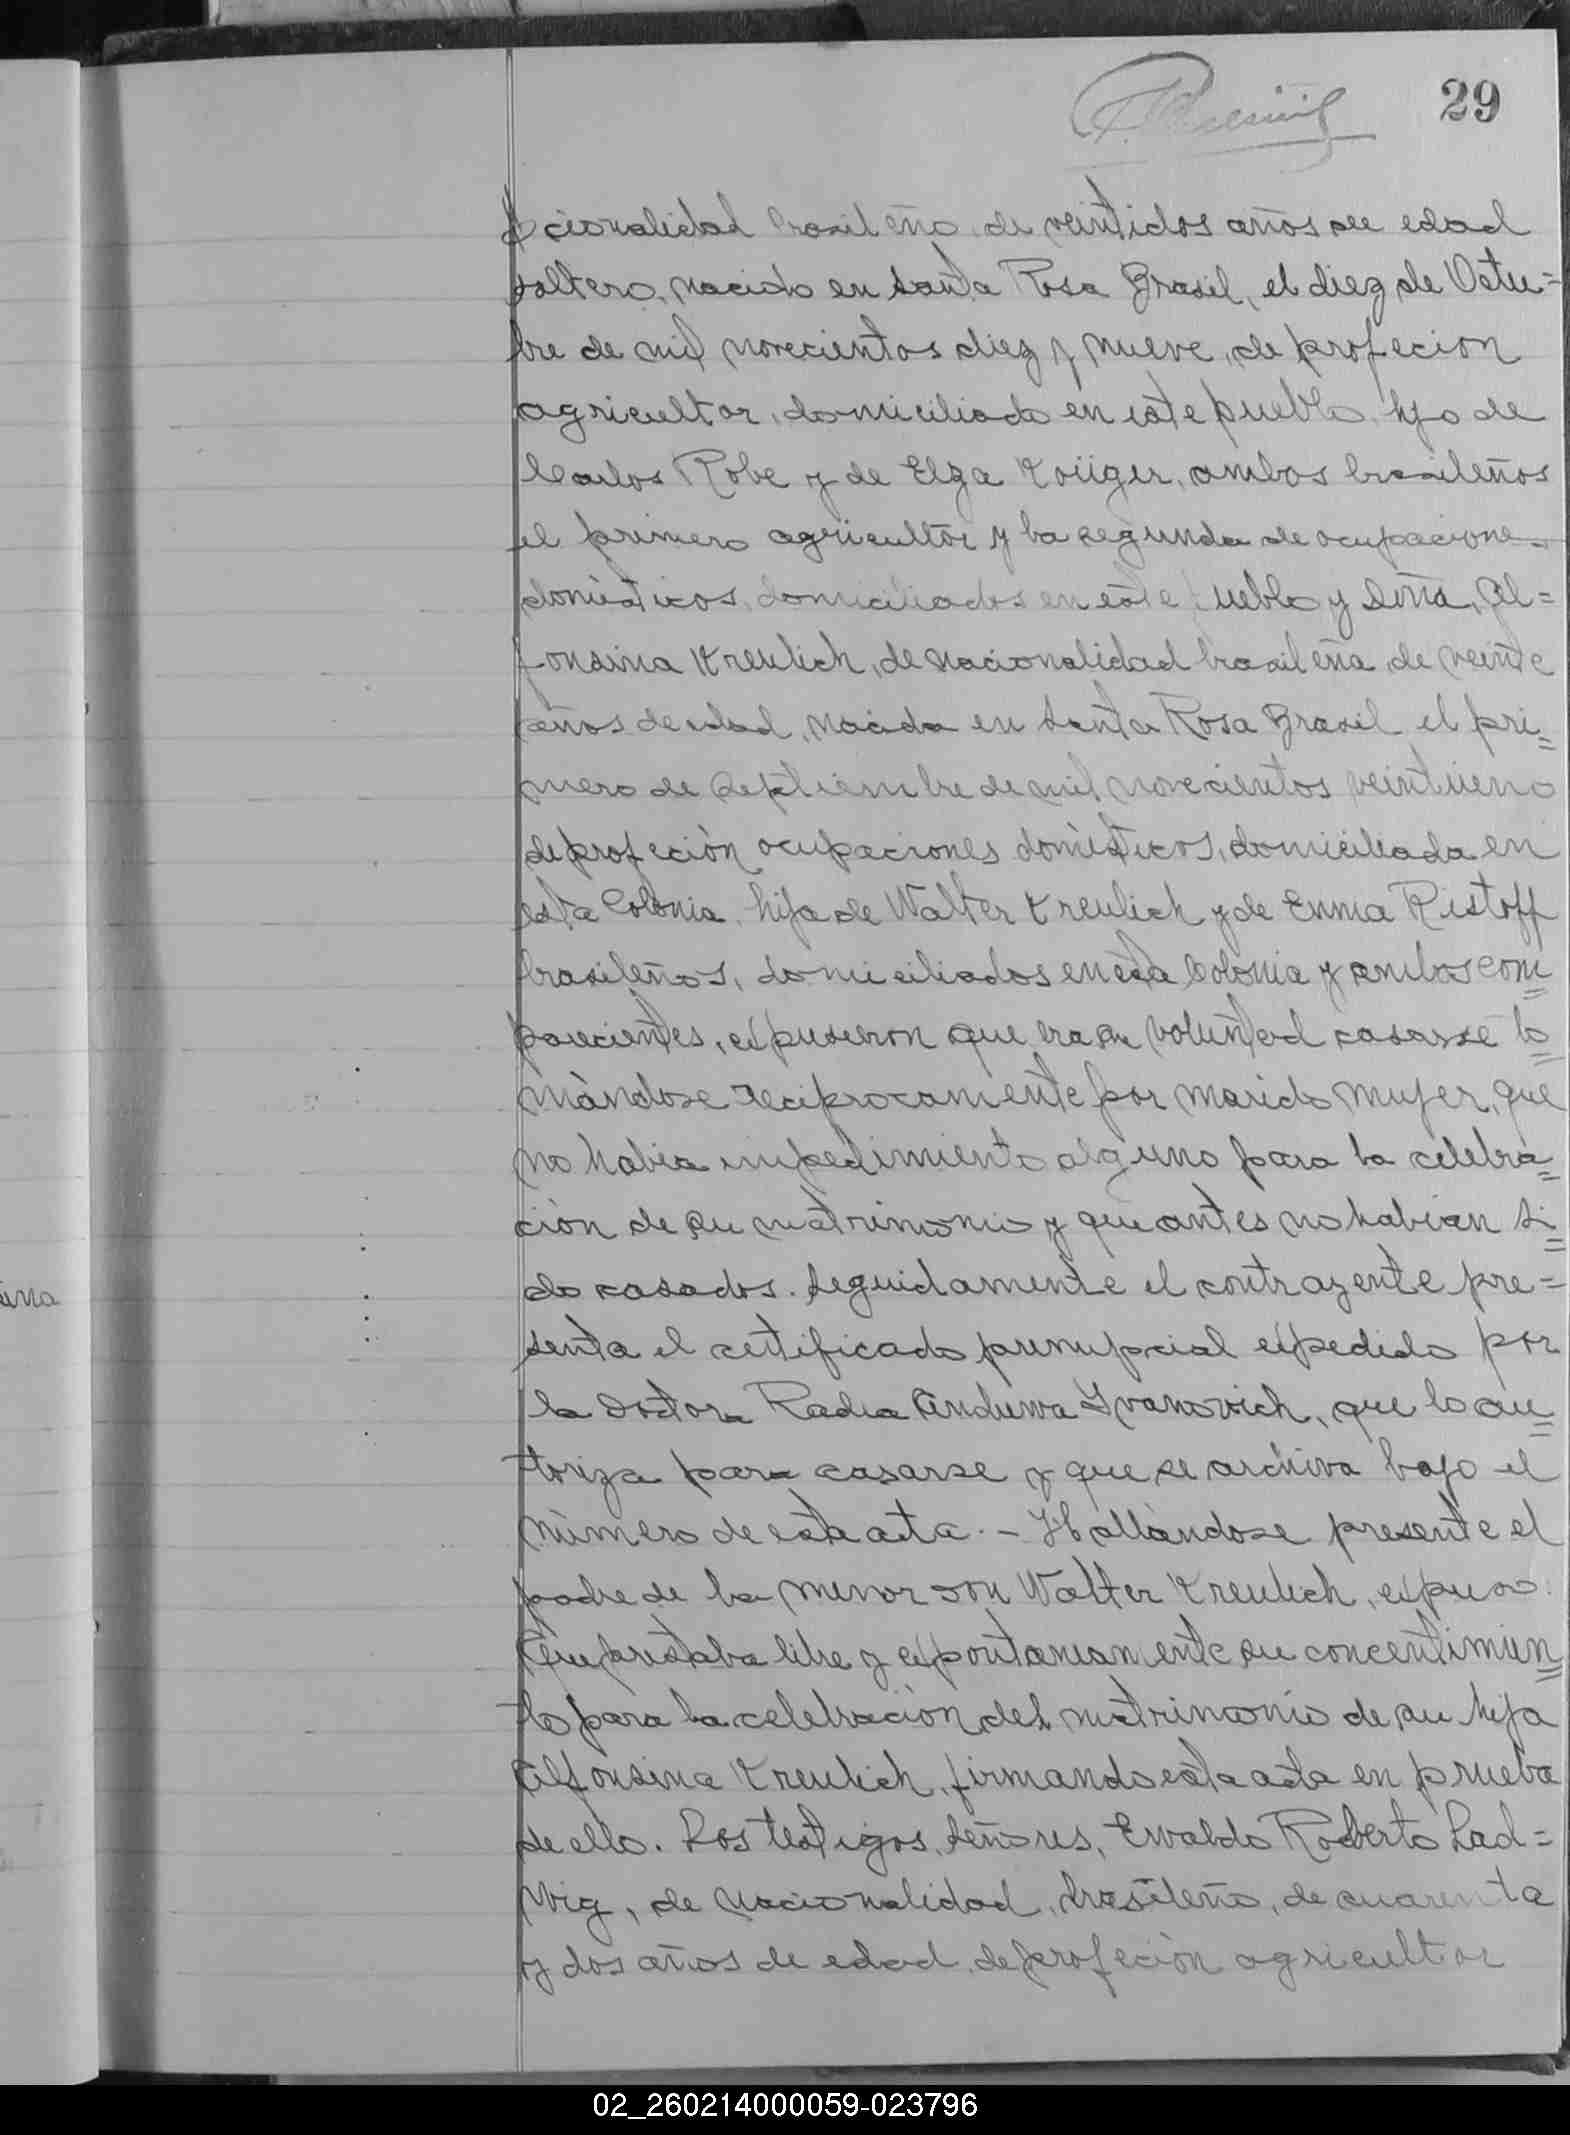 29
cionalidad brasileño de veintidos años de edad
soltero, nacido en Santa Rosa Brasil, el diez de Octu=
bre de mil novecientos diez y nueve, de profecion
agricultor, domiciliado en este pueblo, hijo de
Carlos Robe y de Elza Krüger, ambos brasileños
el primero agricultor y la segunda de ocupaciones
domésticos, domiciliados en este pueblo y Doña, Al=
fonsina Kreulich, de nacionalidad brasileña, de veinte
años de edad, nacida en Santa Rosa Brasil el pri=
mero de Septiembre de mil novecientos veintiuno
de profeción ocupaciones domésticos, domiciliada en
esta Colonia, hija de Walter Kreulich y de Emma Ristoff
brasileños, domiciliados en esta Colonia y ambos com=
parecientes, expusieron que era su voluntad casarse to=
mándose reciprocamente por marido mujer, que
no habia impedimiento alguno para la celebra=
ción de su matrimonio y que antes no habian si=
do casados. Seguidamente el contrayente pre=
senta el certificado prenupcial expedido por
la Doctora Radia Ivanovich, que lo au=
toriza para casarse y que se archiva bajo el
número de esta acta. - Hallándose presente el
padre de la menor don Walter Kreulich, expuso:
Que prestaba libre y espontaneamente su concentimien=
to para la celebración del matrimonio de su hija
Alfonsina Kreulich, firmando esta acta en prueba
de ello. Los testigos, Señores, Ervaldo Roberto Lad=
wig, de nacionalidad, brasileño, de cuarenta
y dos años de edad, de profeción agricultor
02_260214000059-023796